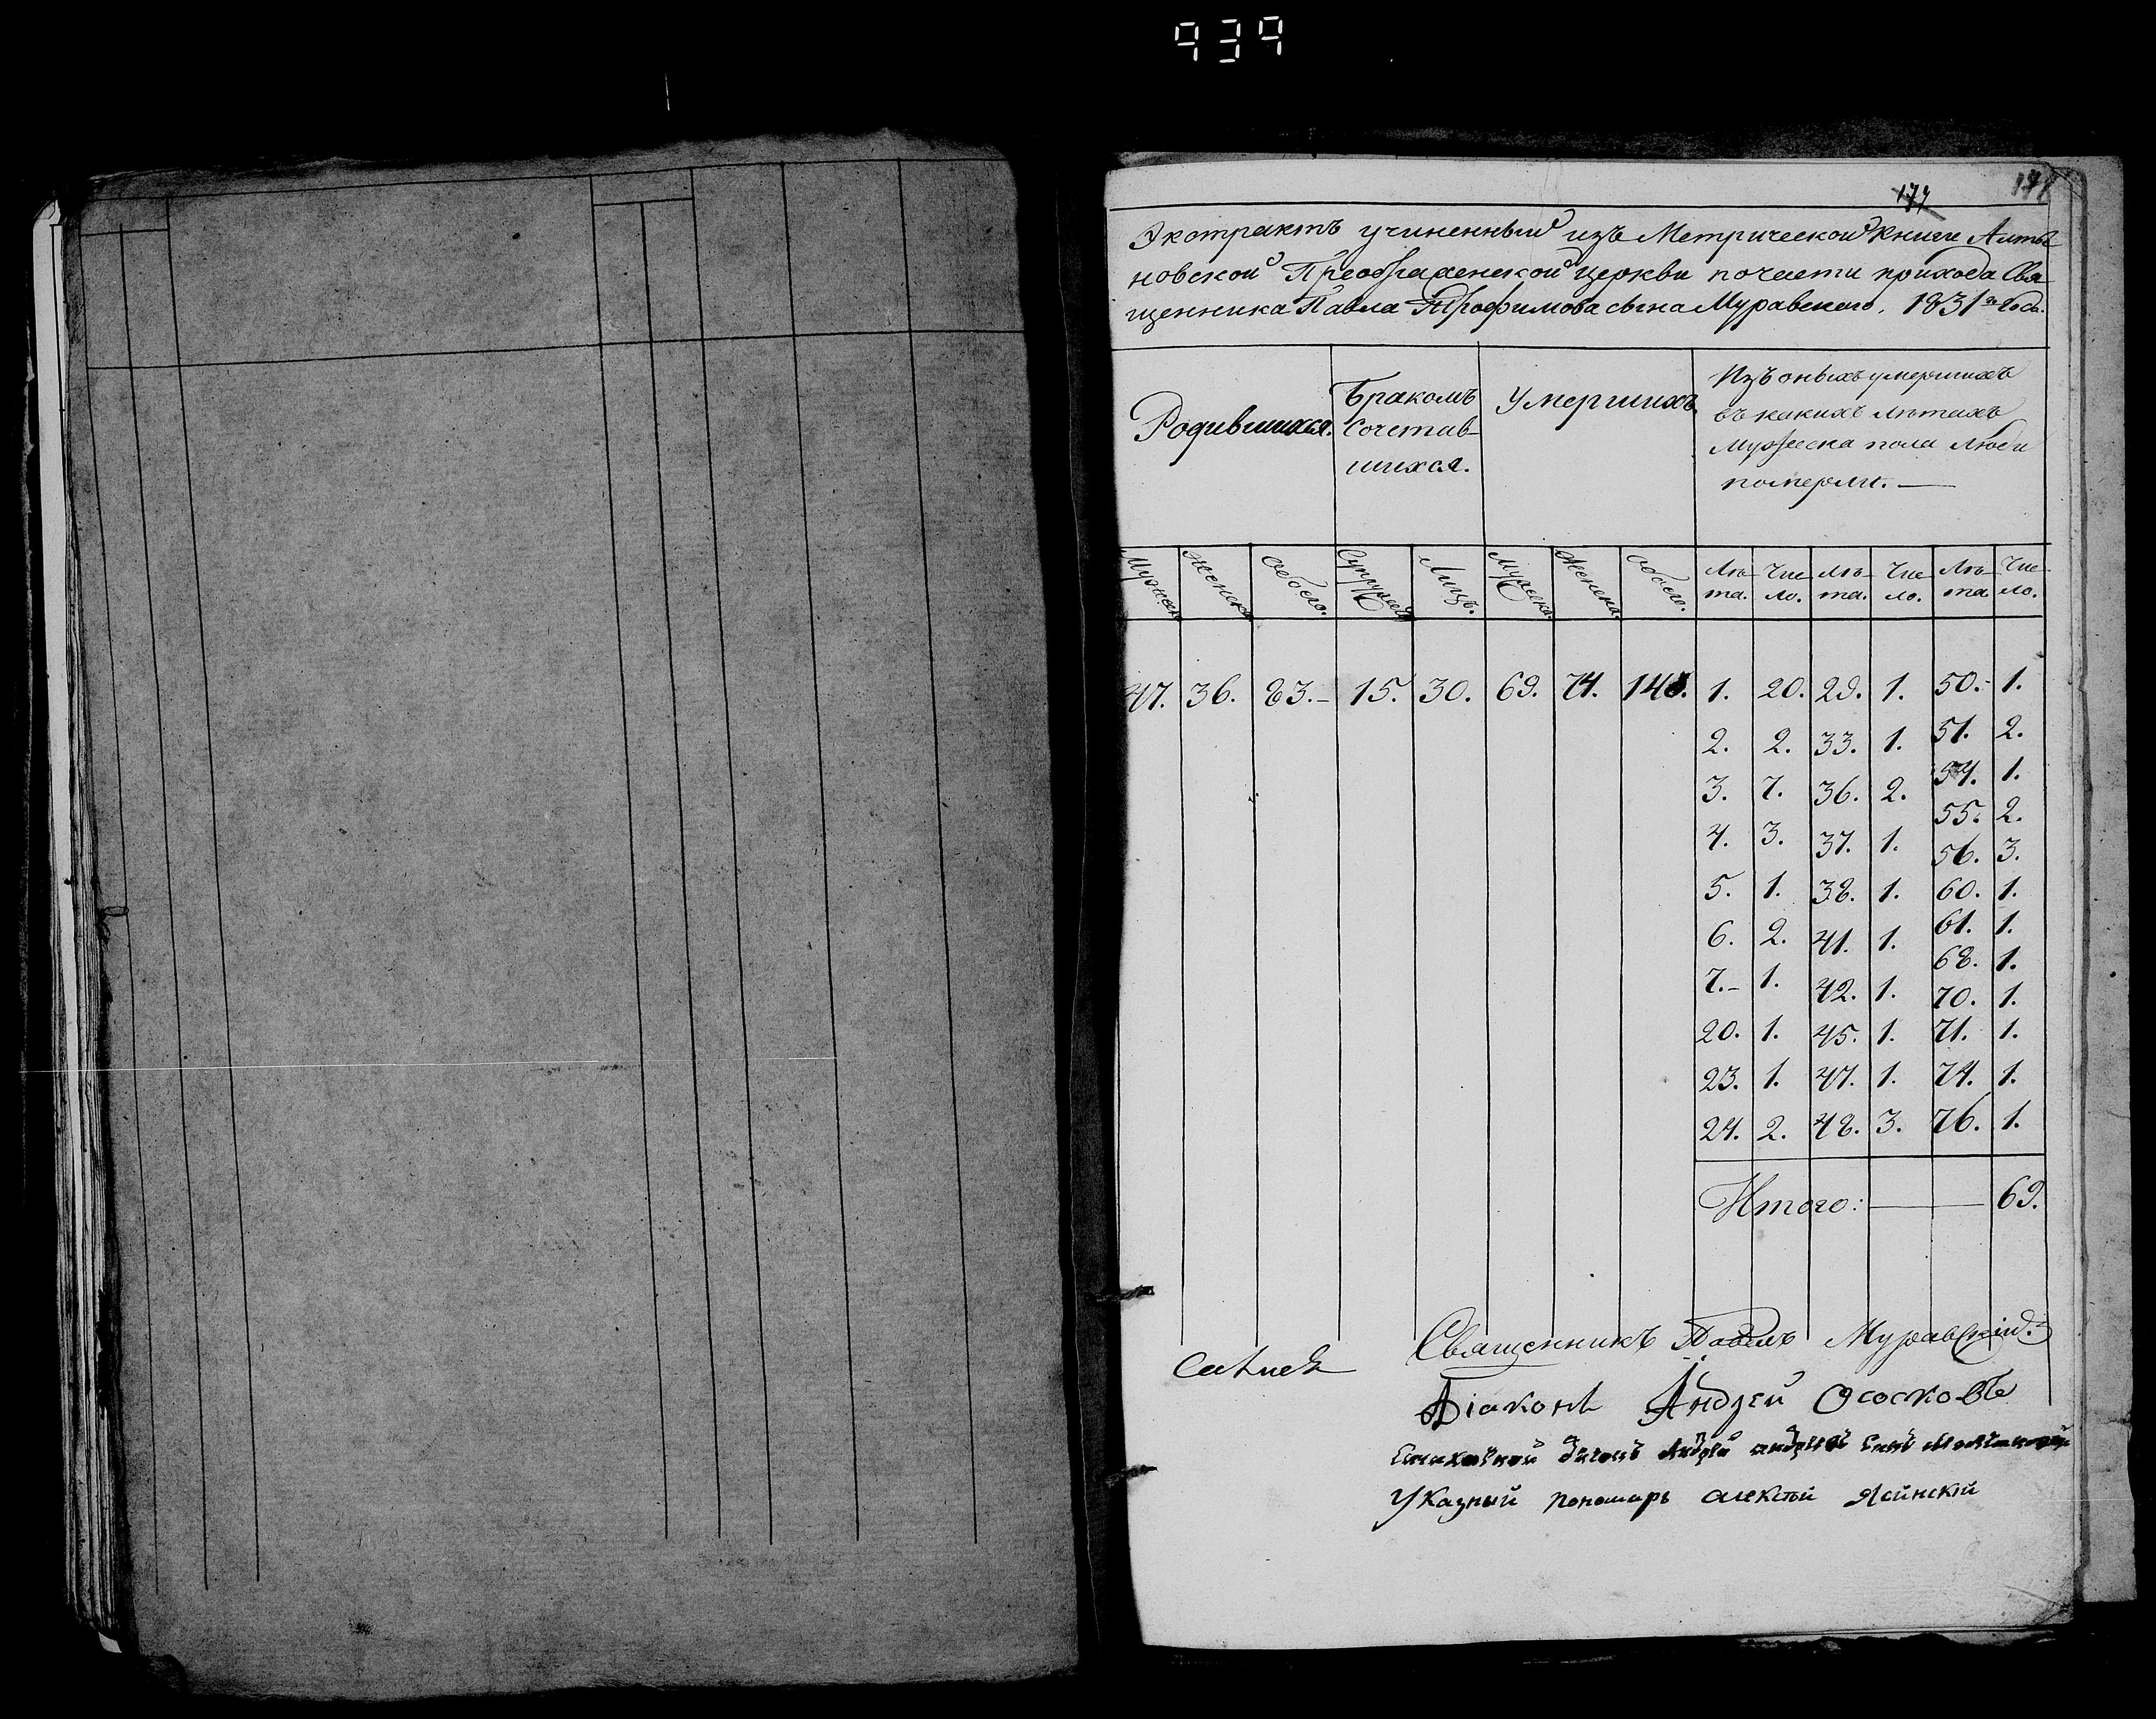 939
177
Экстрактъ учиненный изъ Метрической Книги Алты-
новской Преображенской церкви почасти прихода Свя-
щенника Павла Трофимова сына Муравского. 1831го Года.
Родившихся.
Бракомъ
Сочетав-
шихся.
Умершихъ
Изъ оныхъ умершихъ
въ какихъ лѣтахъ
Мужеска пола Люди
померли. —
Мужеск. Женск. Обоего. Супружеств Лицъ. Мужеска. Женска. Обоего. Лѣ-та. Чис-ло. Лѣ-та. Чис-ло. Лѣ-та Чис-ло.
47. 36. 83.– 15. 30. 69. 74. 143. 1. 20. 29. 1. 50.– 1.
2. 2. 33. 1. 51. 2.
3. 7. 36. 2. 54. 1.
55. 2.
4. 3. 37. 1. 56. 3.
5. 1. 38. 1. 60. 1.
6. 2. 41. 1. 61. 1.
68. 1.
7.– 1. 42. 1. 70. 1.
20. 1. 45. 1. 71. 1.
23. 1. 47. 1. 74. 1.
24. 2. 48. 3. 76. 1.
Итого: — 69.
Священникъ Павелъ Муравскій.
Діаконъ Андрей Ососковъ
Андрей Андреевъ сынъ
Указный пономарь Алексѣй Ясинскій